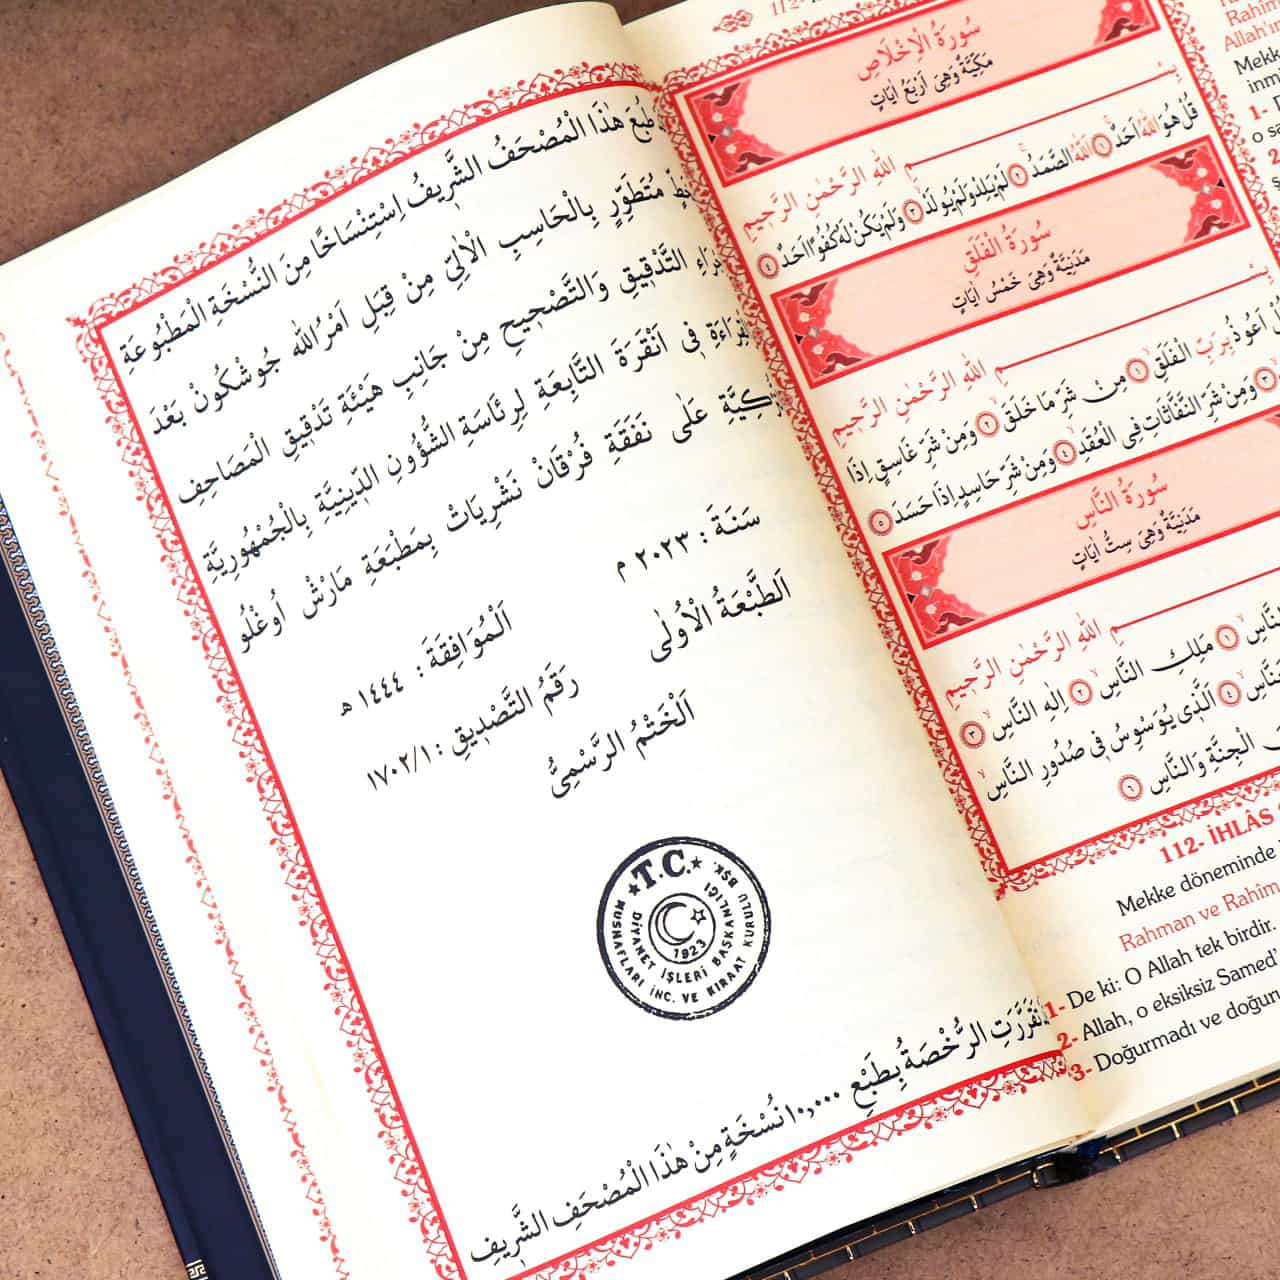 طُبِعَ هٰذَا الْمُصْحَفُ الشَّرٖيفُ اِسْتِنْسَاخًا مِنَ النُّسْخَةِ الْمَطْبُوعَةِ
مُتَطَوِّرٍ بِالْحَاسِبِ الْاٰلِيِّ مِنْ قِبَلِ اَمْرُاللّٰه جُوشْكُونْ بَعْدَ
التَّدْقٖيقِ وَالتَّصْحٖيحِ مِنْ جَانِبِ هَيْئَةِ تَدْقٖيقِ الْمَصَاحِفِ
فٖى اَنْقَرَةَ التَّابِعَةِ لِرِئَاسَةِ الشُّؤُونِ الدّٖينِيَّةِ بِالْجُمْهُورِيَّةِ
عَلٰى نَفَقَةِ فُرْقَانْ نَشْرِيَاتْ بِمَطْبَعَةِ مَارْشْ اُوغْلُو
سَنَةَ : ٢٠٢٣ م
اَلْمُوَافِقَةَ : ١٤٤٤ هـ
اَلطَّبْعَةُ الْاُولٰى
رَقَمُ التَّصْدٖيقِ : ١٧٠٢/١
اَلْخَتْمُ الرَّسْمِىُّ
★T.C.★
MUSHAFLARI İNC. VE KIRAAT KURULU BŞK.
DİYANET İŞLERİ BAŞKANLIĞI
1923
تَقَرَّرَتِ الرُّخْصَةُ بِطَبْعِ ١٠,٠٠٠ نُسْخَةٍ مِنْ هٰذَا الْمُصْحَفِ الشَّرٖيفِ
112-
سُورَةُ الْاِخْلَاصِ
مَكِّيَّةٌ وَهِىَ اَرْبَعُ اٰيَاتٍ
بِسْمِ اللّٰهِ الرَّحْمٰنِ الرَّحٖيمِ
قُلْ هُوَ اللّٰهُ اَحَدٌۚ ١ اَللّٰهُ الصَّمَدُۚ ٢ لَمْ يَلِدْ وَلَمْ يُولَدْۙ ٣ وَلَمْ يَكُنْ لَهُ كُفُوًا اَحَدٌ ٤
سُورَةُ الْفَلَقِ
مَدَنِيَّةٌ وَهِىَ خَمْسُ اٰيَاتٍ
بِسْمِ اللّٰهِ الرَّحْمٰنِ الرَّحٖيمِ
اَعُوذُ بِرَبِّ الْفَلَقِۙ ١ مِنْ شَرِّ مَا خَلَقَۙ ٢ وَمِنْ شَرِّ غَاسِقٍ اِذَا
٣ وَمِنْ شَرِّ النَّفَّاثَاتِ فِى الْعُقَدِۙ ٤ وَمِنْ شَرِّ حَاسِدٍ اِذَا حَسَدَ ٥
سُورَةُ النَّاسِ
مَدَنِيَّةٌ وَهِىَ سِتُّ اٰيَاتٍ
بِسْمِ اللّٰهِ الرَّحْمٰنِ الرَّحٖيمِ
النَّاسِۙ ١ مَلِكِ النَّاسِۙ ٢ اِلٰهِ النَّاسِۙ ٣
٤ اَلَّذٖى يُوَسْوِسُ فٖى صُدُورِ النَّاسِۙ
الْجِنَّةِ وَالنَّاسِ ٦
112- İHLÂS
Mekke döneminde
Rahman ve Rahîm
1- De ki: O Allah tek birdir.
2- Allah, o eksiksiz Samed'
3- Doğurmadı ve doğur
Rahîm
Allah'ın
Mekk
inm
1-
o s
2